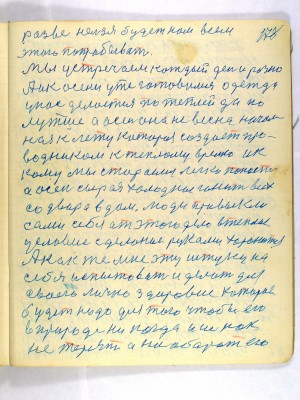 разве нельзя будет нам всем
этого по
Мы устречаем каждый день разно
А к осени уже готовимся одежда
у нас делается по теплей да по
лучше а осень она не весна начал
ная к лету которая создает про-
водником к теплому время и к
кому мы старались легко
а осень сырая холодная гонит всех
со двора в дом. Люди привыкли
сами себя от этого дело в теплые
условие сделаные руками хоронится
А как же мне эту штуку на
себя испытывать и делать для
своего лично здоровие которое
будет надо для того чтобы его
в природе ни когда и не как
не терять а наоборот его